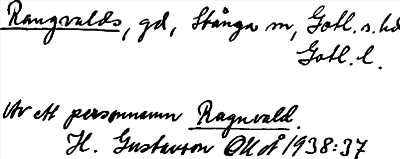 Rangvalds, gd, Stånga sn, Gotl. s. hd
Gotl. l.
Av ett personnamn Ragnvald.
H. Gustavson OUÅ 1938:37